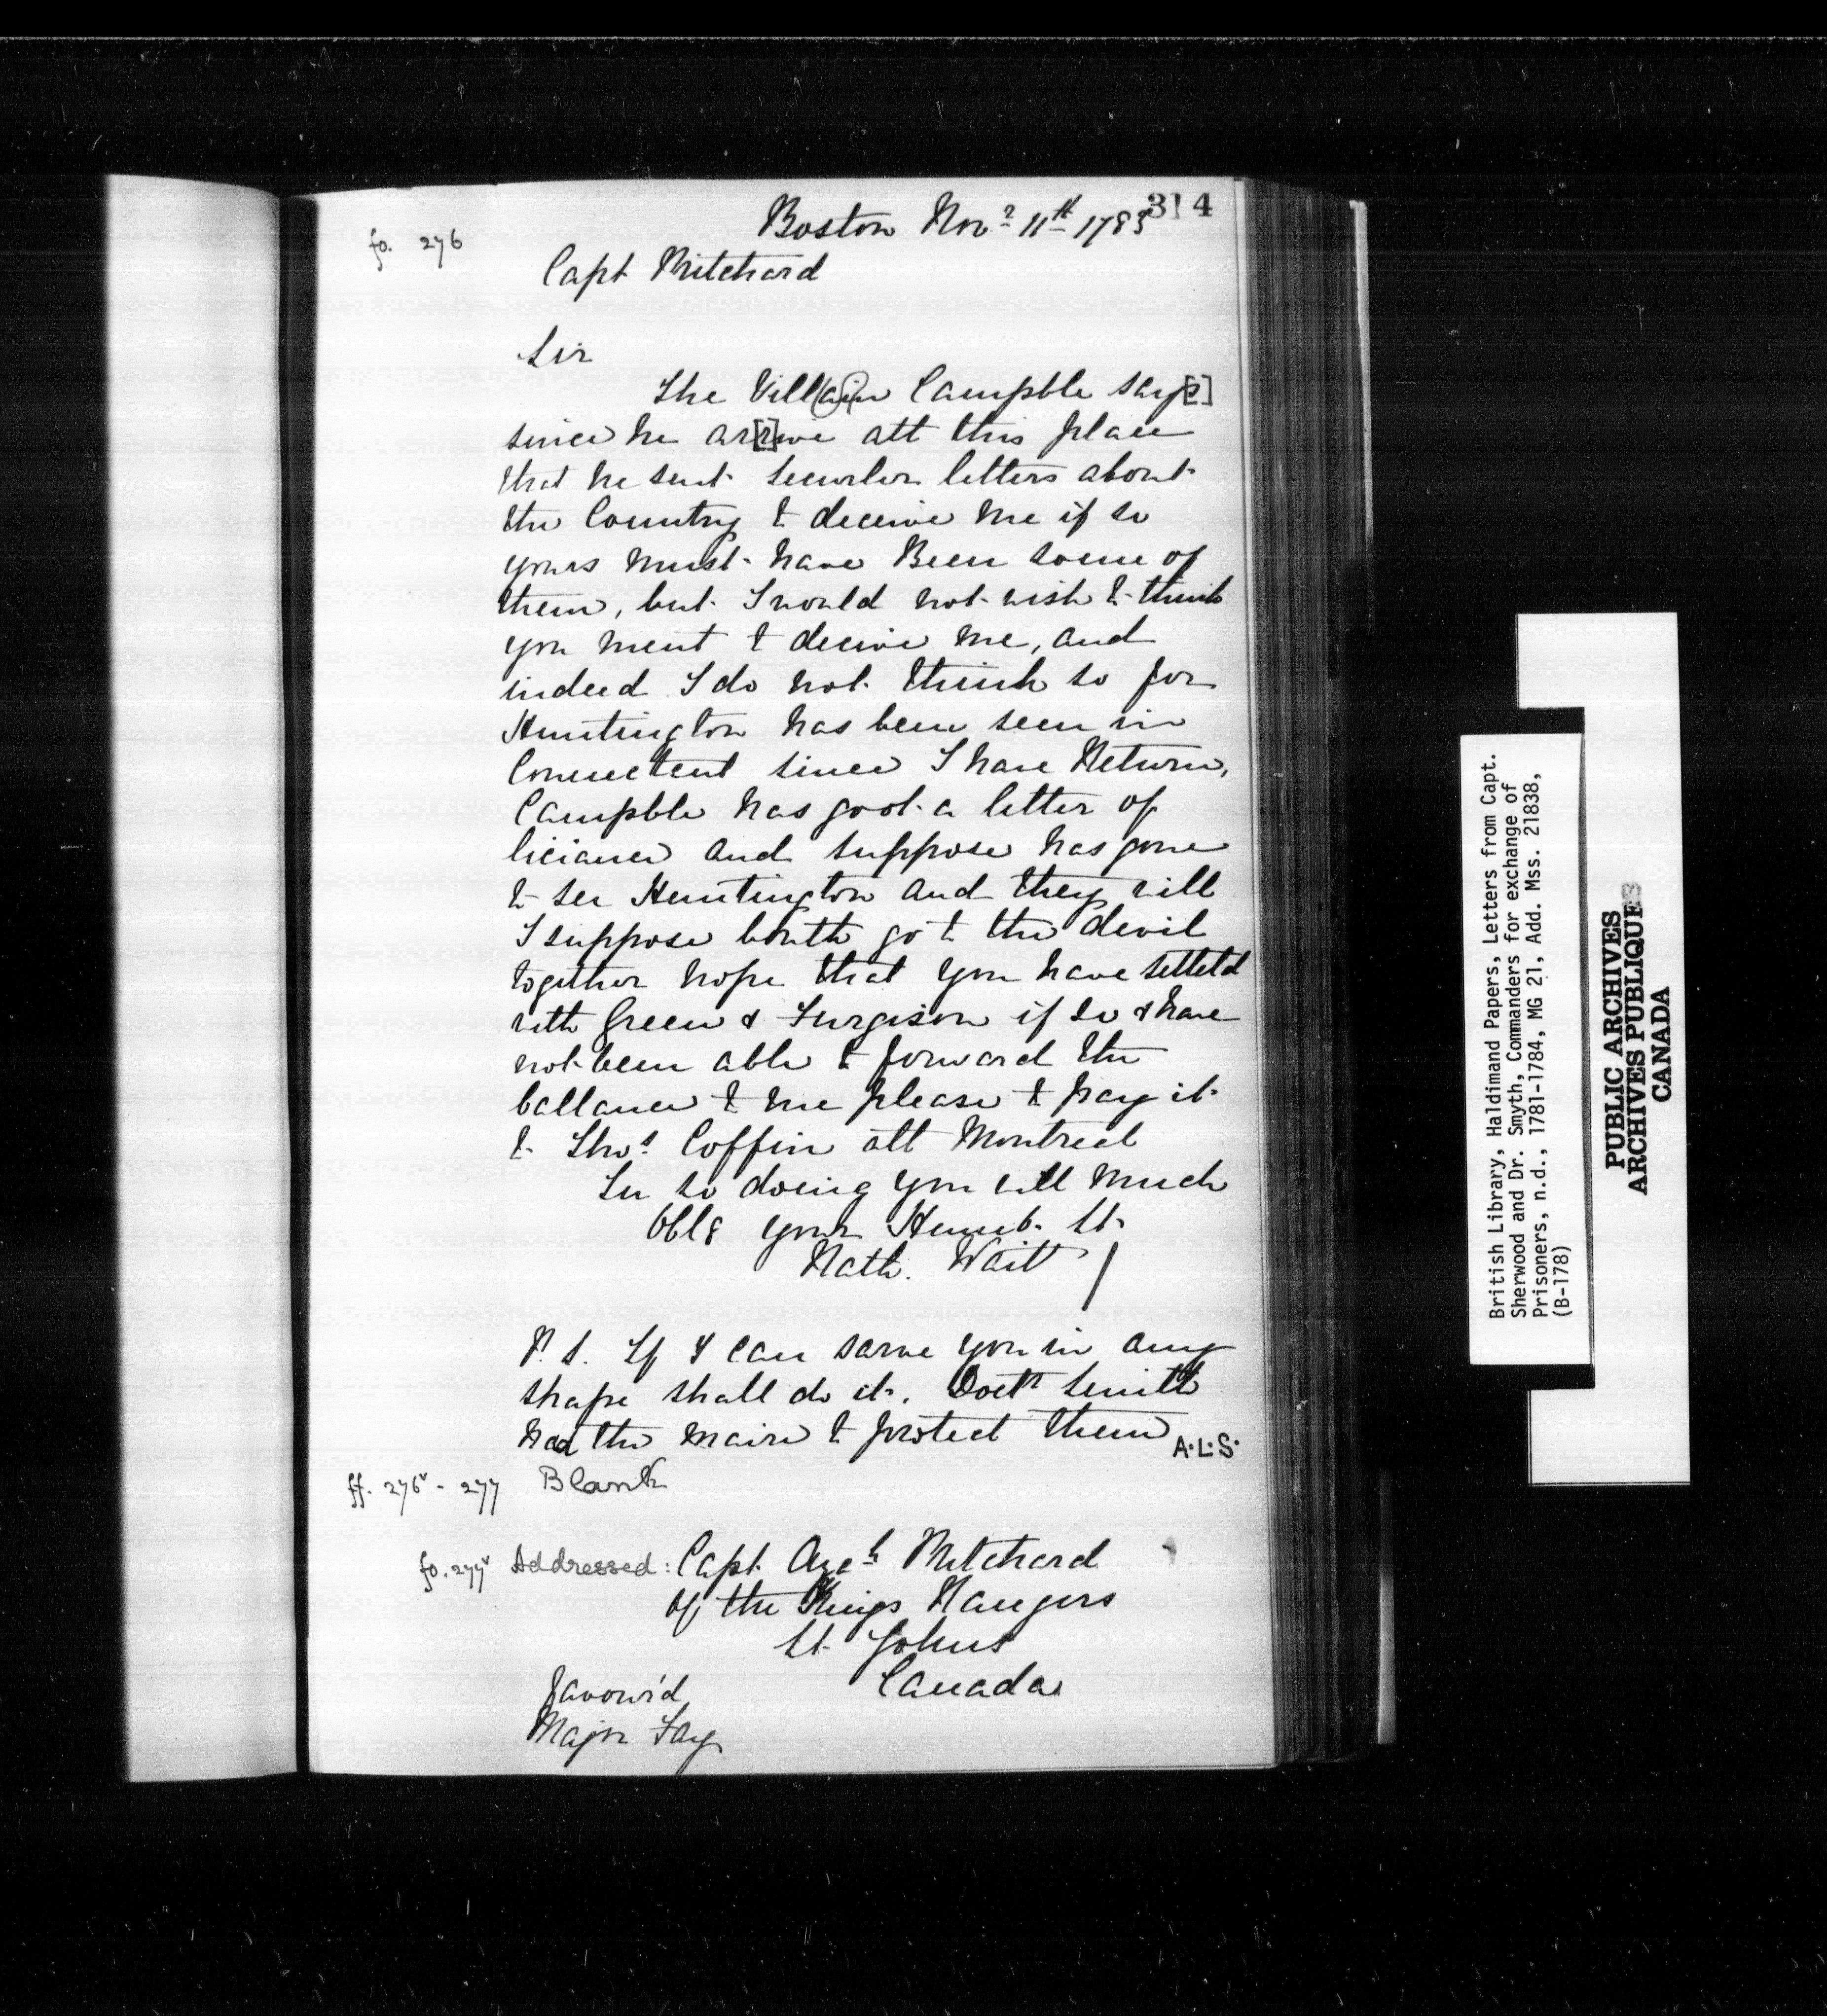 314
Boston Novr 11th 1783
fo. 276
Capt Pritchard
Sir
The Vill(ai)n Campble say[s]
since he ar[r]ive att this place
that he sent seurler letters about
the Country to deceive me if so
yours must have Been some of
them, but I would not wish to think
you ment to decive me, and
indeed I do not think so for
Huntington has been seen in
Connectent since I have Return,
Campble has goot a letter of
liciance and suppose has gone
to see Huntington and they will
I suppose bouth go to the devil
together hope that you have setteld
with Green & Furgison if so & have
not been able to forward the
ballance to me please to pay it
to Thos. Coffin att Montreal
In so doing you will much
Oblg your Humb. St.
Nath. Wait /
P.S. If I can sarve you in any
shape shall do it. Doctr Smith
had the maire to protect them
A.L.S.
ff. 276v - 277 Blank
fo. 277v Addressed: Capt. Azah Pritchard
of the Kings Rangers
St. Johns
Canada
Favour'd
Major Fay
British Library, Haldimand Papers, Letters from Capt.
Sherwood and Dr. Smyth, Commanders for exchange of
Prisoners, n.d., 1781-1784, MG 21, Add. Mss. 21838,
(B-178)
PUBLIC ARCHIVES
ARCHIVES PUBLIQUES
CANADA